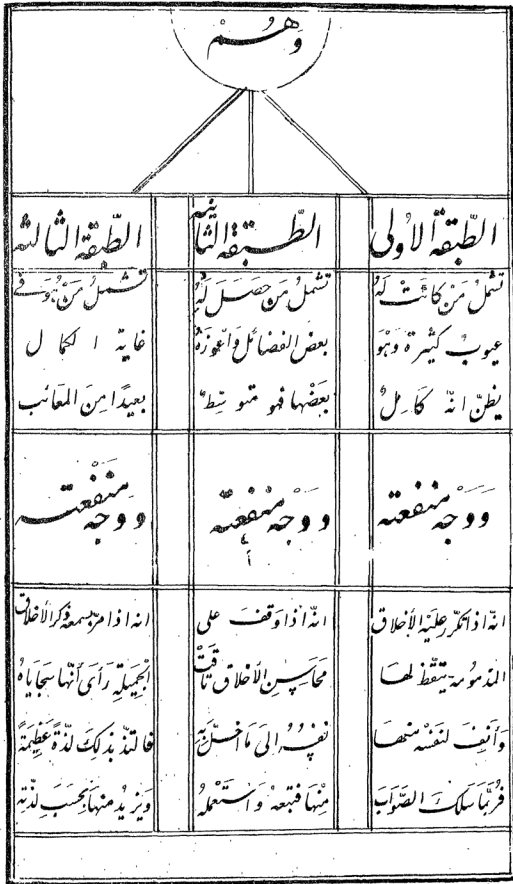 وَهُمْ
الطّبقة الأولى
تشملُ مَن كانَتْ لَهُ
عيوبٌ كثيرة وَهُوَ
يظنّ انّه كَامِلٌ
وَوَجْه منفعته
انه اذا تكرّر عليه الأخلاق
المذمومه تيقّظ لها
وَأنِفَ لنفسْه منها
فرُبّمَا سَلكَ الصّوَابَ
الطّبقة الثانيه
تشملُ من حصَلَ لَهُ
بعض الفضائل وَاعوزَهُ
بعضْها فهو متوسّطٌ
وَوَجْه منفعته
انّه اذا وَقفَ على
محَاسِن الأخلاق تاقتْ
نفسُهُ الى مَا اخلّ به
مِنها فتبعهُ وَاستَعْملهُ
الطّبقة الثالثه
تشملُ مَنْ هُوَ في
غاية الكمال
بعيدًا مِنَ المعَائب
وَوَجْه منفعته
انه اذا مرّ بسمعه ذكر الأخلاق
الجَميلة رَأى أنّها سجَايَاهُ
فالتذّ بذلِكَ لذّةً عَظِيمَةً
وَيزيدُ منهَا بحَسَبِ لذّته